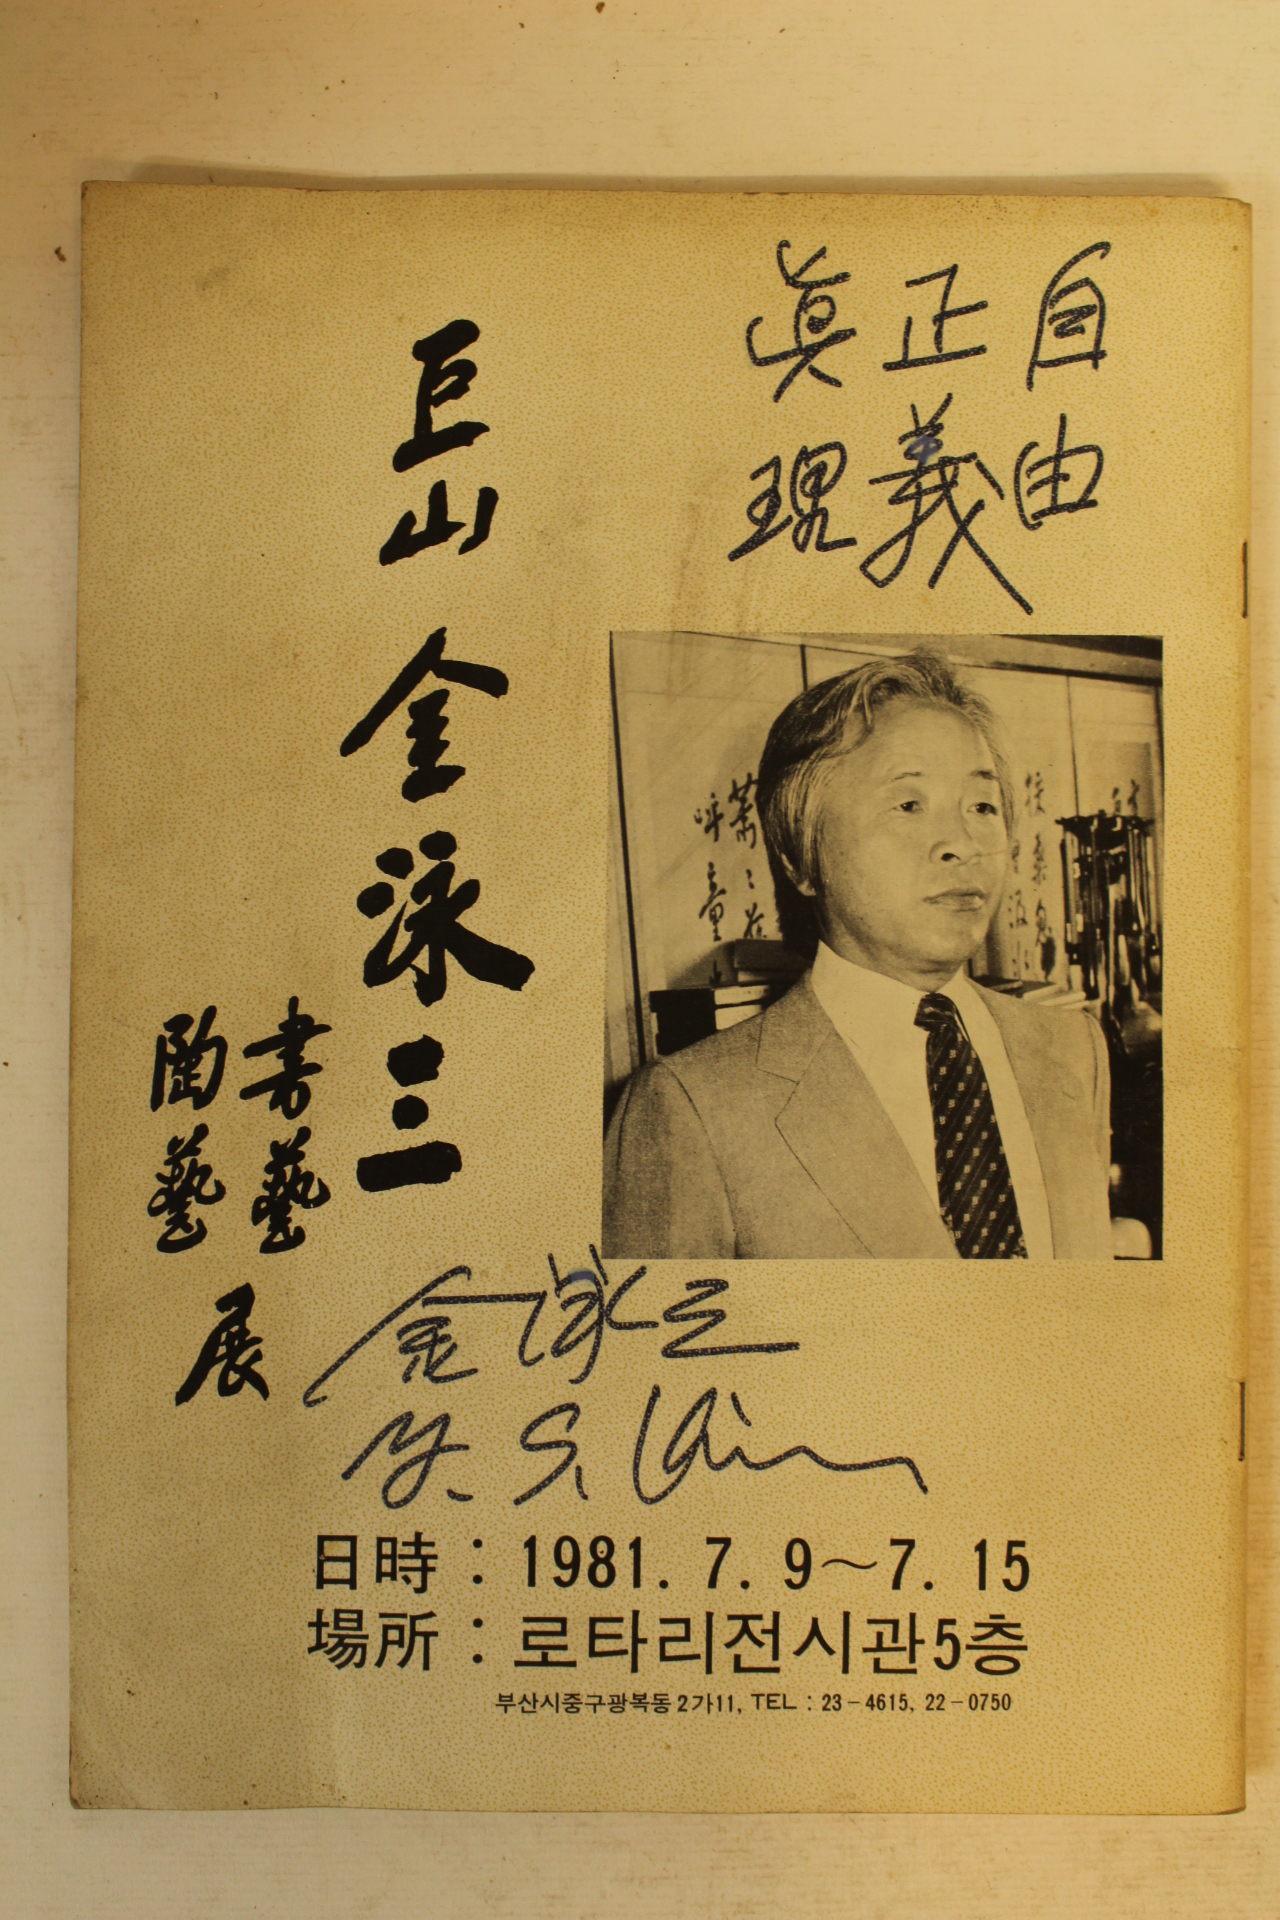 自由
正義
眞理
巨山 金泳三
書藝
陶藝
展
金泳三
Y. S. Kim
日時 : 1981. 7. 9~7. 15
場所 : 로타리전시관5층
부산시중구광복동2가11, TEL : 23-4615, 22-0750